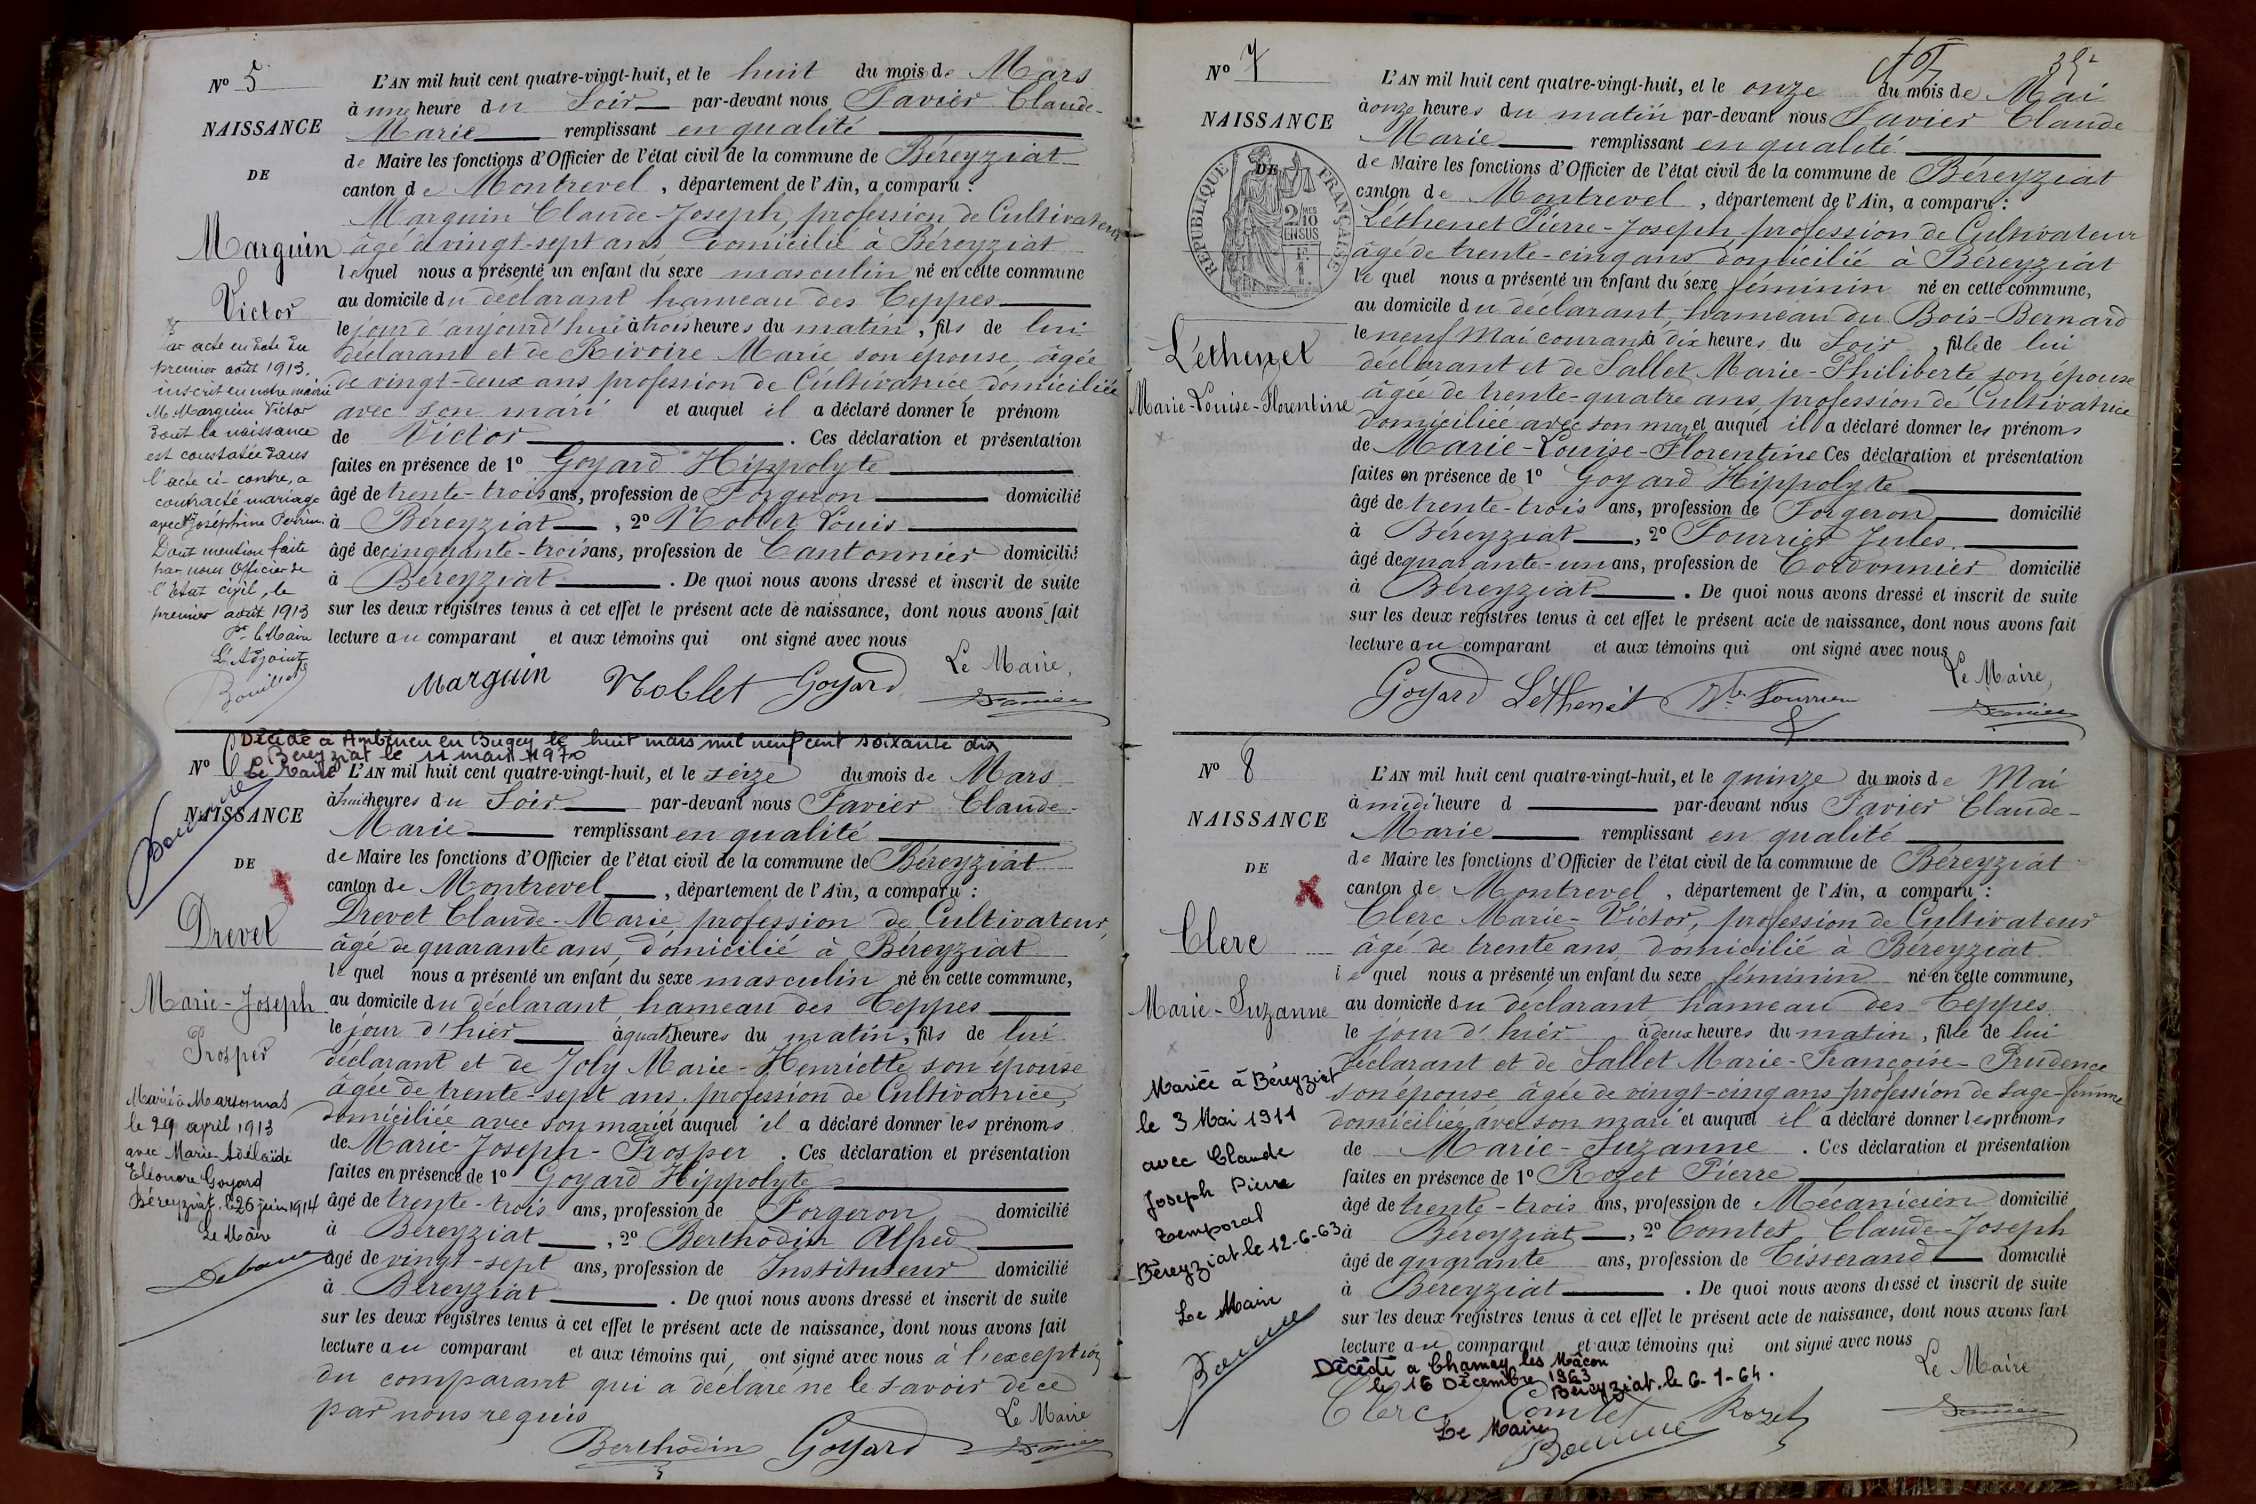 N° 5
NAISSANCE
DE
Marguin
Victor
Par acte en date du
premier août 1913,
inscrit en notre mairie
M. Marguin Victor
dont la naissance
est constatée dans
l'acte ci-contre, a
contracté mariage
avec Joséphine Perrin.
Dont mention faite
par nous Officier de
l'Etat civil, le
premier août 1913
Pr le Maire
L'Adjoint
L'AN mil huit cent quatre-vingt-huit, et le huit du mois de Mars
à une heure du Soir par-devant nous Favier Claude-
Marie remplissant en qualité
de Maire les fonctions d'Officier de l'état civil de la commune de Béreyziat
canton de Montrevel, département de l'Ain, a comparu :
Marguin Claude-Joseph, profession de Cultivateur
âgé de vingt-sept ans domicilié à Béreyziat
lequel nous a présenté un enfant du sexe masculin né en cette commune
au domicile du déclarant hameau des Teppes
le jour d'aujourd'hui à trois heures du matin, fils de lui
déclarant et de Rivoire Marie son épouse, âgée
de vingt-deux ans profession de Cultivatrice domiciliée
avec son mari et auquel il a déclaré donner le prénom
de Victor. Ces déclaration et présentation
faites en présence de 1° Goyard Hippolyte
âgé de trente-trois ans, profession de Forgeron domicilié
à Béreyziat, 2° Noblet Louis
âgé de cinquante-trois ans, profession de Cantonnier domicilié
à Béreyziat. De quoi nous avons dressé et inscrit de suite
sur les deux registres tenus à cet effet le présent acte de naissance, dont nous avons fait
lecture au comparant et aux témoins qui ont signé avec nous
Le Maire,
Marguin Noblet Goyard Favier
Décédé à Ambérieu en Bugey le huit mars mil neuf cent soixante dix
Béreyziat le 11 mars 1970
Le Maire
N° 6
NAISSANCE
DE
Drevet
Marie-Joseph
Prosper
Marié à Marsonnas
le 29 april 1913
avec Marie Adélaïde
Eléonore Goyard
Béreyziat, le 26 juin 1914
Le Maire
L'AN mil huit cent quatre-vingt-huit, et le seize du mois de Mars
à huit heures du Soir par-devant nous Favier Claude-
Marie remplissant en qualité
de Maire les fonctions d'Officier de l'état civil de la commune de Béreyziat
canton de Montrevel, département de l'Ain, a comparu :
Drevet Claude-Marie, profession de Cultivateur,
âgé de quarante ans, domicilié à Béreyziat
lequel nous a présenté un enfant du sexe masculin né en cette commune,
au domicile du déclarant, hameau des Teppes
le jour d'hier à quatre heures du matin, fils de lui
déclarant et de Joly Marie-Henriette son épouse
âgée de trente-sept ans, profession de Cultivatrice,
domiciliée avec son mari et auquel il a déclaré donner les prénoms
de Marie-Joseph-Prosper. Ces déclaration et présentation
faites en présence de 1° Goyard Hippolyte
âgé de trente-trois ans, profession de Forgeron domicilié
à Béreyziat, 2° Berthodin Alfred
âgé de vingt-sept ans, profession de Instituteur domicilié
à Béreyziat. De quoi nous avons dressé et inscrit de suite
sur les deux registres tenus à cet effet le présent acte de naissance, dont nous avons fait
lecture au comparant et aux témoins qui, ont signé avec nous à l'exception
du comparant qui a déclaré ne le savoir de ce
par nous requis
Le Maire
Berthodin Goyard Favier
N° 7
NAISSANCE
DE
RÉPUBLIQUE FRANÇAISE
2/10 MES
EN SUS
Léthenet
Marie-Louise-Florentine
L'AN mil huit cent quatre-vingt-huit, et le onze du mois de Mai
à onze heures du matin par-devant nous Favier Claude
Marie remplissant en qualité
de Maire les fonctions d'Officier de l'état civil de la commune de Béreyziat
canton de Montrevel, département de l'Ain, a comparu :
Léthenet Pierre-Joseph profession de Cultivateur
âgé de trente-cinq ans domicilié à Béreyziat
lequel nous a présenté un enfant du sexe féminin né en cette commune,
au domicile du déclarant, hameau du Bois-Bernard
le neuf Mai courant à dix heures du Soir, fille de lui
déclarant et de Sallet Marie-Philiberte son épouse
âgée de trente-quatre ans, profession de Cultivatrice
domiciliée avec son mari et auquel il a déclaré donner les prénoms
de Marie-Louise-Florentine Ces déclaration et présentation
faites en présence de 1° Goyard Hippolyte
âgé de trente-trois ans, profession de Forgeron domicilié
à Béreyziat, 2° Fourrier Jules
âgé de quarante-un ans, profession de Cordonnier domicilié
à Béreyziat. De quoi nous avons dressé et inscrit de suite
sur les deux registres tenus à cet effet le présent acte de naissance, dont nous avons fait
lecture au comparant et aux témoins qui ont signé avec nous
Le Maire,
Goyard Lethenet Fourrier Favier
N° 8
NAISSANCE
DE
Clerc
Marie-Suzanne
Mariée à Béreyziat
le 3 Mai 1911
avec Claude
Joseph Pierre
Temporal
Béreyziat le 12-6-63
Le Maire
L'AN mil huit cent quatre-vingt-huit, et le quinze du mois de Mai
à midi heure d par-devant nous Favier Claude-
Marie remplissant en qualité
de Maire les fonctions d'Officier de l'état civil de la commune de Béreyziat
canton de Montrevel, département de l'Ain, a comparu :
Clerc Marie-Victor, profession de Cultivateur
âgé de trente ans, domicilié à Béreyziat
lequel nous a présenté un enfant du sexe féminin né en cette commune,
au domicile du déclarant hameau des Teppes
le jour d'hier à deux heures du matin, fille de lui
déclarant et de Sallet Marie-Françoise-Prudence
son épouse âgée de vingt-cinq ans profession de sage-femme
domiciliée avec son mari et auquel il a déclaré donner les prénoms
de Marie-Suzanne. Ces déclaration et présentation
faites en présence de 1° Rozet Pierre
âgé de trente-trois ans, profession de Mécanicien domicilié
à Béreyziat, 2° Comtet Claude-Joseph
âgé de quarante ans, profession de Tisserand domicilié
à Béreyziat. De quoi nous avons dressé et inscrit de suite
sur les deux registres tenus à cet effet le présent acte de naissance, dont nous avons fait
lecture au comparant et aux témoins qui ont signé avec nous
Le Maire
Décédé à Charnay les Mâcon
le 16 Décembre 1963
Béreyziat, le 6-1-64.
Clerc Comtet Rozet Favier
Le Maire